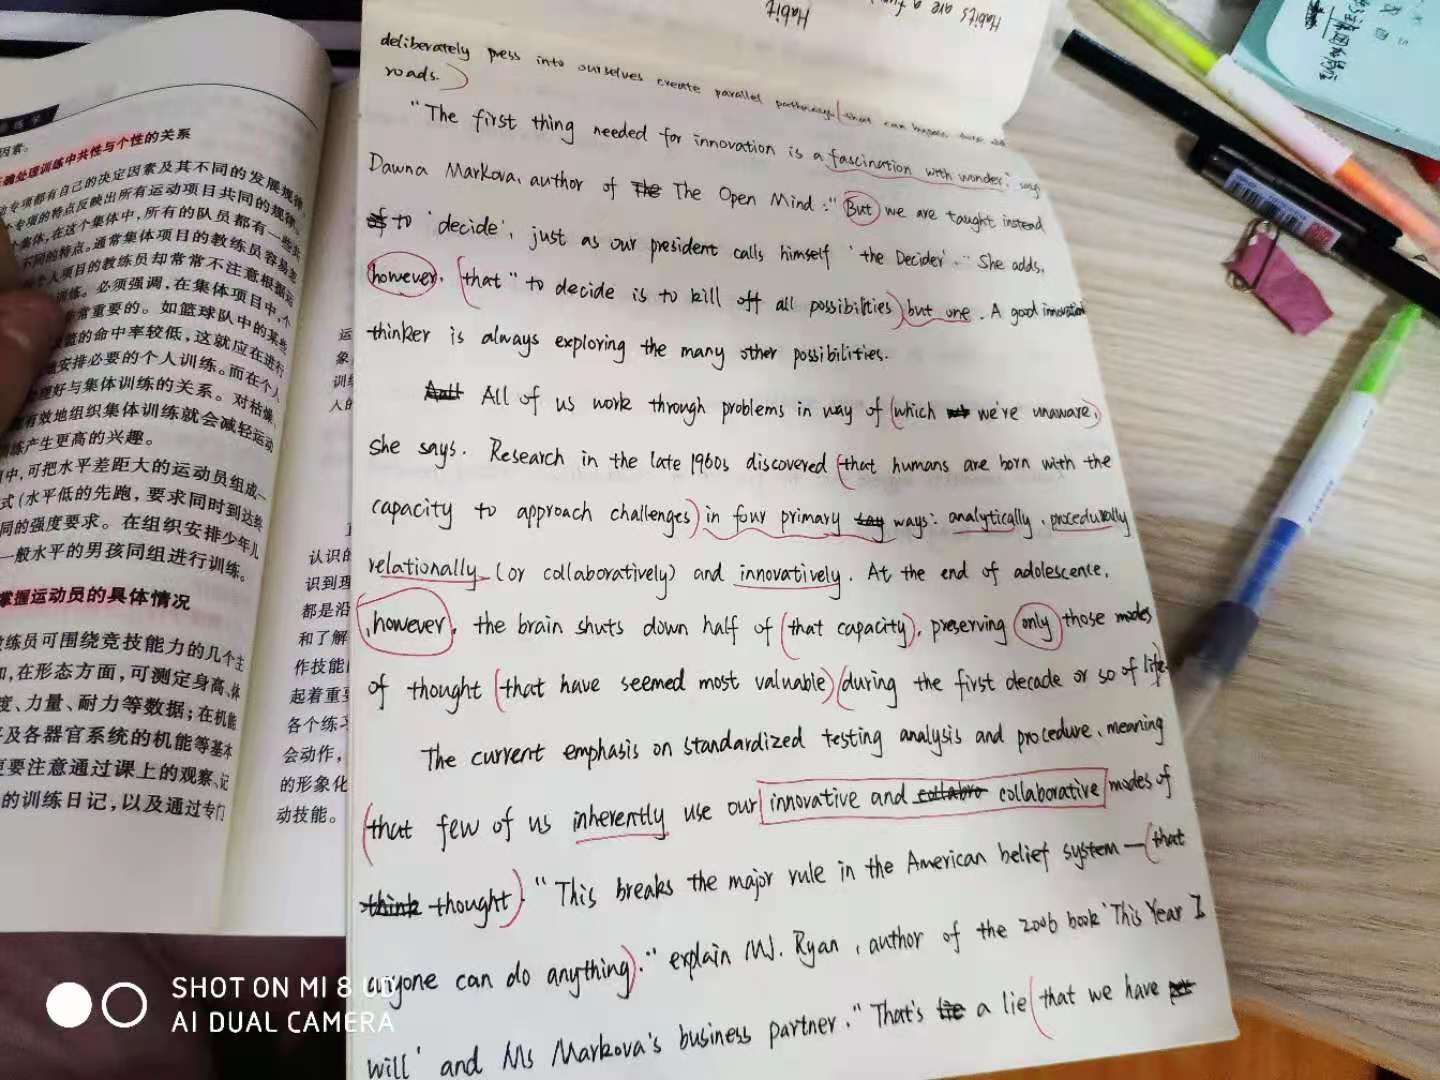 Habits are a fun
Habit
deliberately press into ourselves create parallel pathways (that can bypass those old
roads.)
"The first thing needed for innovation is a fascination with wonder." says
Dawna Markova, author of The The Open Mind :" But we are taught instead
of to 'decide', just as our president calls himself 'the Decider'." She adds,
however, (that " to decide is to kill off all possibilities) but one. A good innovation
thinker is always exploring the many other possibilities.
All of us work through problems in way of (which we're unaware,)
she says. Research in the late 1960s discovered (that humans are born with the
capacity to approach challenges) in four primary ways: analytically, procedurally
relationally (or collaboratively) and innovatively. At the end of adolescence,
, however, the brain shuts down half of (that capacity), preserving only those modes
of thought (that have seemed most valuable) (during the first decade or so of life
The current emphasis on standardized testing analysis and procedure, meaning
(that few of us inherently use our innovative and collabro collaborative modes of
think thought). "This breaks the major rule in the American belief system — (that
anyone can do anything)." explain M.J. Ryan, author of the 2006 book 'This Year I
will' and Ms Markova's business partner. "That's a lie (that we have
因素。
正确处理训练中共性与个性的关系
专项都有自己的决定因素及其不同的发展规律,
个专项的特点反映出所有运动项目共同的规律。
个集体,在这个集体中,所有的队员都有一些共
不同的特点。通常集体项目的教练员容易忽
个人项目的教练员却常常不注意根据运
训练。必须强调,在集体项目中,个
非常重要的。如篮球队中的某些
篮的命中率较低,这就应在进行
安排必要的个人训练。而在个人
处理好与集体训练的关系。对枯燥
有效地组织集体训练就会减轻运动
练产生更高的兴趣。
中,可把水平差距大的运动员组成一
式(水平低的先跑,要求同时到达终
同的强度要求。在组织安排少年儿
一般水平的男孩同组进行训练。
掌握运动员的具体情况
教练员可围绕竞技能力的几个主
如,在形态方面,可测定身高、体
度、力量、耐力等数据;在机能
及各器官系统的机能等基本
更要注意通过课上的观察、记
的训练日记,以及通过专门
运
象
训练
人的
认识的
识到理
都是沿
和了解
作技能
起着重要
各个练习
会动作,
的形象化
动技能。
SHOT ON MI 8 UD
AI DUAL CAMERA